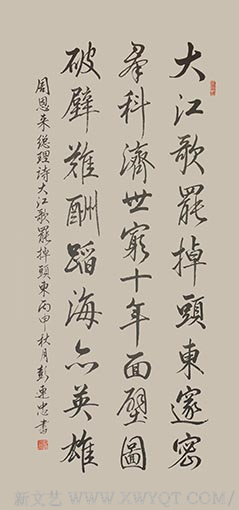 大江歌罷掉頭東邃密
羣科濟世窮十年面壁圖
破壁難酬蹈海亦英雄
周恩来總理詩大江歌罷掉頭東丙申秋月彭運忠書
新文艺 WWW.XWYQT.COM/